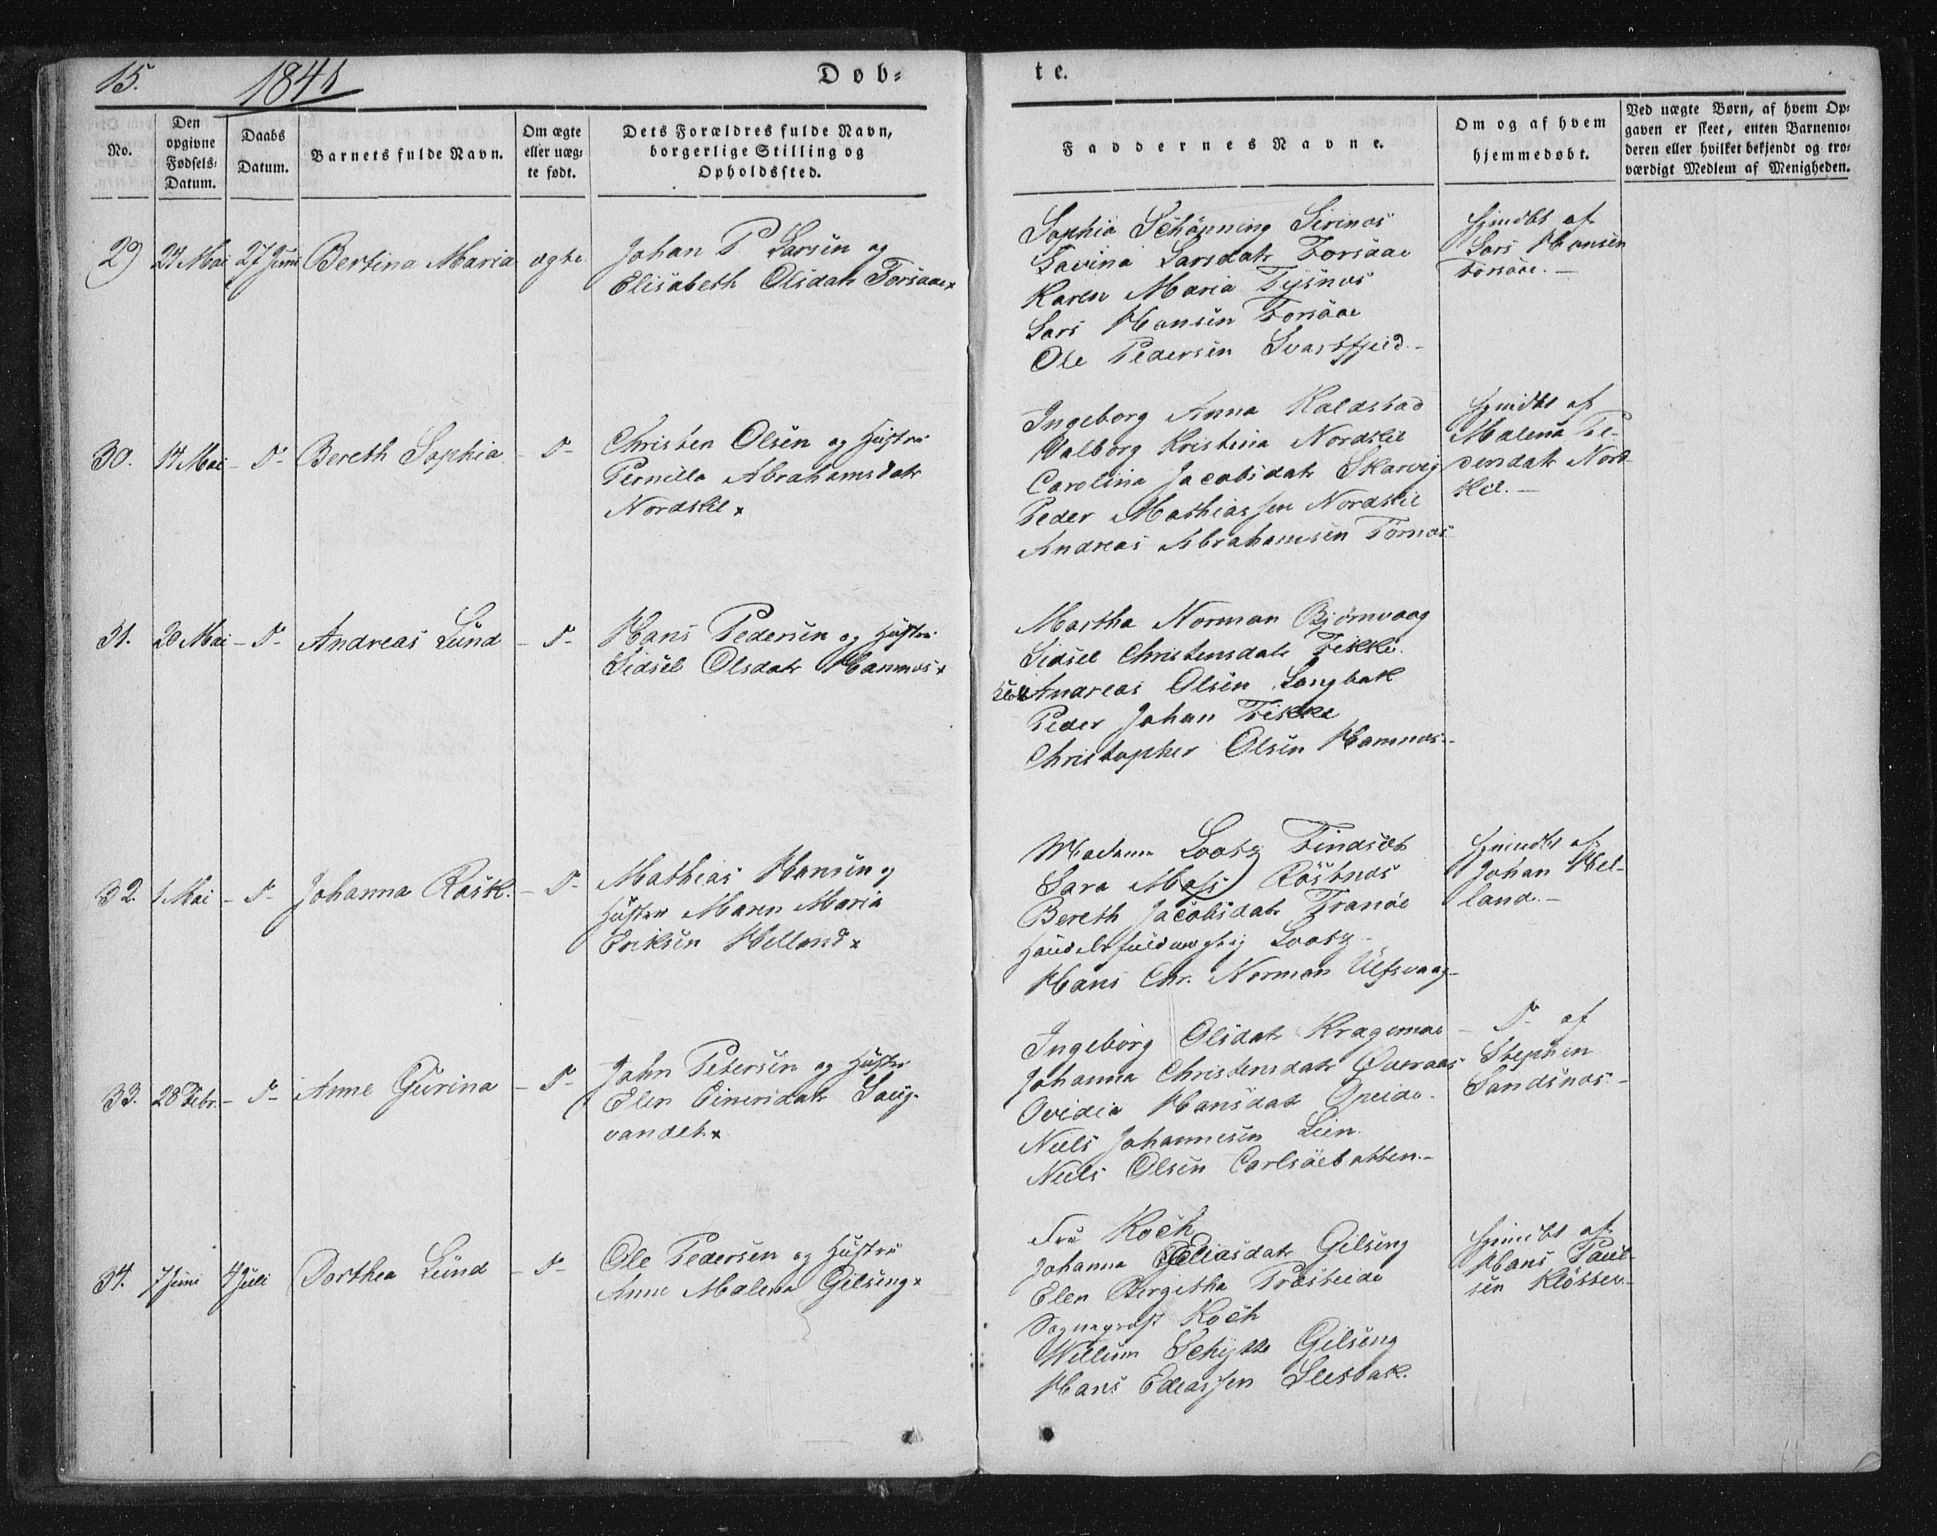 15. 1841 Døb-
te.
No.
Den opgivne Fødsels-Datum.
Daabs Datum.
Barnets fulde Navn.
Om ægte eller uæg-te født.
Dets Forældres fulde Navn, borgerlige Stilling og Opholdssted.
Faddernes Navne.
Om og af hvem hjemmedøbt.
Ved uægte Børn, af hvem Op-
gaven er skeet, enten Barnemo-
deren eller hvilket bekjendt og tro-
værdigt Medlem af Menigheden.
29 Mai 27 Juni Bertina Maria ægte
Johan P Larsen og
Elisabeth Olsdatr Forsaae x
Sophia Schønning
Lavina Larsdatr Forsaae
Karen Maria Tysnæs
Lars Hansen Forsaae
Ole Pedersen
Hjmdbt af
Lars Hansen
Forsaae.-
30. 17 Mai - D- Bereth Sophia - D-
Christen Olsen og Hustru
Pernilla Abrahamsdatr
Nordskil x
Ingeborg Anna Kaldstad
Valborg Kristina Nordskil
Carolina Jacobsdatr Skarvig
Peder Mathiassen Nordskil
Andreas Abrahamsen Tornæs
Hjmdbt af
Malena Pe-
dersdatr Nord-
skil.-
31. 20 Mai - D- Andreas Lund - D-
Hans Pedersen og Hustru
Sidsel Olsdatr Hamnæs x
Martha Norman Bjørnvaag
Sidsel Christensdatr Fikke.
Andreas Olsen Langbak
Peder Johan Fikke
Christopher Olsen Hamnæs.-
32. 1 Mai - D- Johanna Rask. - D-
Mathias Hansen og
Hustru Maren Maria
Eriksen Helland x
Madame Lootz Findsæt
Sara Moss Røstnæs
Bereth Jacobsdatr Tranøe
Handelsfuldmægtig Lootz
Hans Chr. Norman Ulfsvaag-
Hjmdbt af
Johan Hel-
land.-
33. 28 Febr. - D- Anne Gurina - D-
John Petersen og Hustr
Elen Einersdatr Saug-
vandet x
Ingeborg Olsdatr Kragemoe
Johanna Christensdatr Overaas
Ovidia Hansdatr Opeide.
Niels Johannesen Lien.
Niels Olsen Carlsøebotten.-
- D- af
Stephen
Sandsnæs.-
34. 7 Juni 4 Juli Dorthea Lund - D-
Ole Pedersen og Hustru
Anne Malena Gilseng x
Fru Koch
Johanna Eliasdatr Gilseng
Elen Birgitha Prøsteide
Sogneprest Koch
Willum Schytte Gilseng
Hans Eliassen Leesbak.
Hjmdbt af
Hans Paul-
sen Kløsser.-